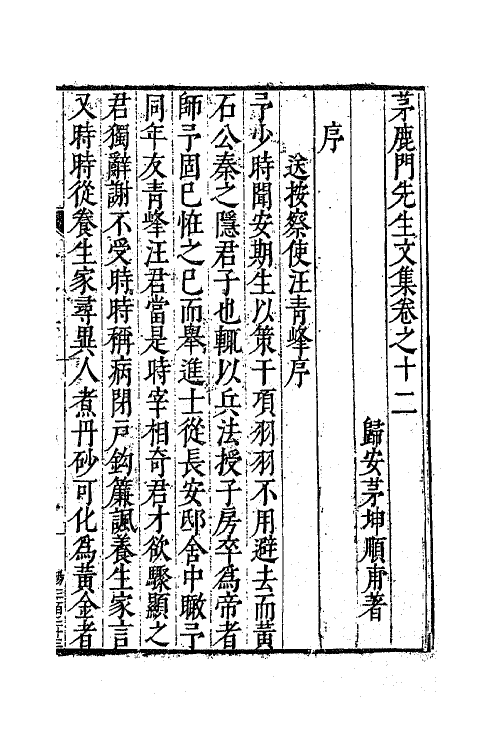 茅鹿門先生文集卷之十二
歸安茅坤順甫著
序
送按察使汪青峰序
予少時聞安期生以策干項羽羽不用避去而黃
石公秦之隱君子也輒以兵法授子房卒為帝者
師予固已恠之已而舉進士從長安邸舍中瞰予
同年友青峰汪君當是時宰相奇君才欲驟顯之
君獨辭謝不受時時稱病閉戸鈎簾諷養生家言
又時時從養生家尋異人煮丹砂可化為黃金者